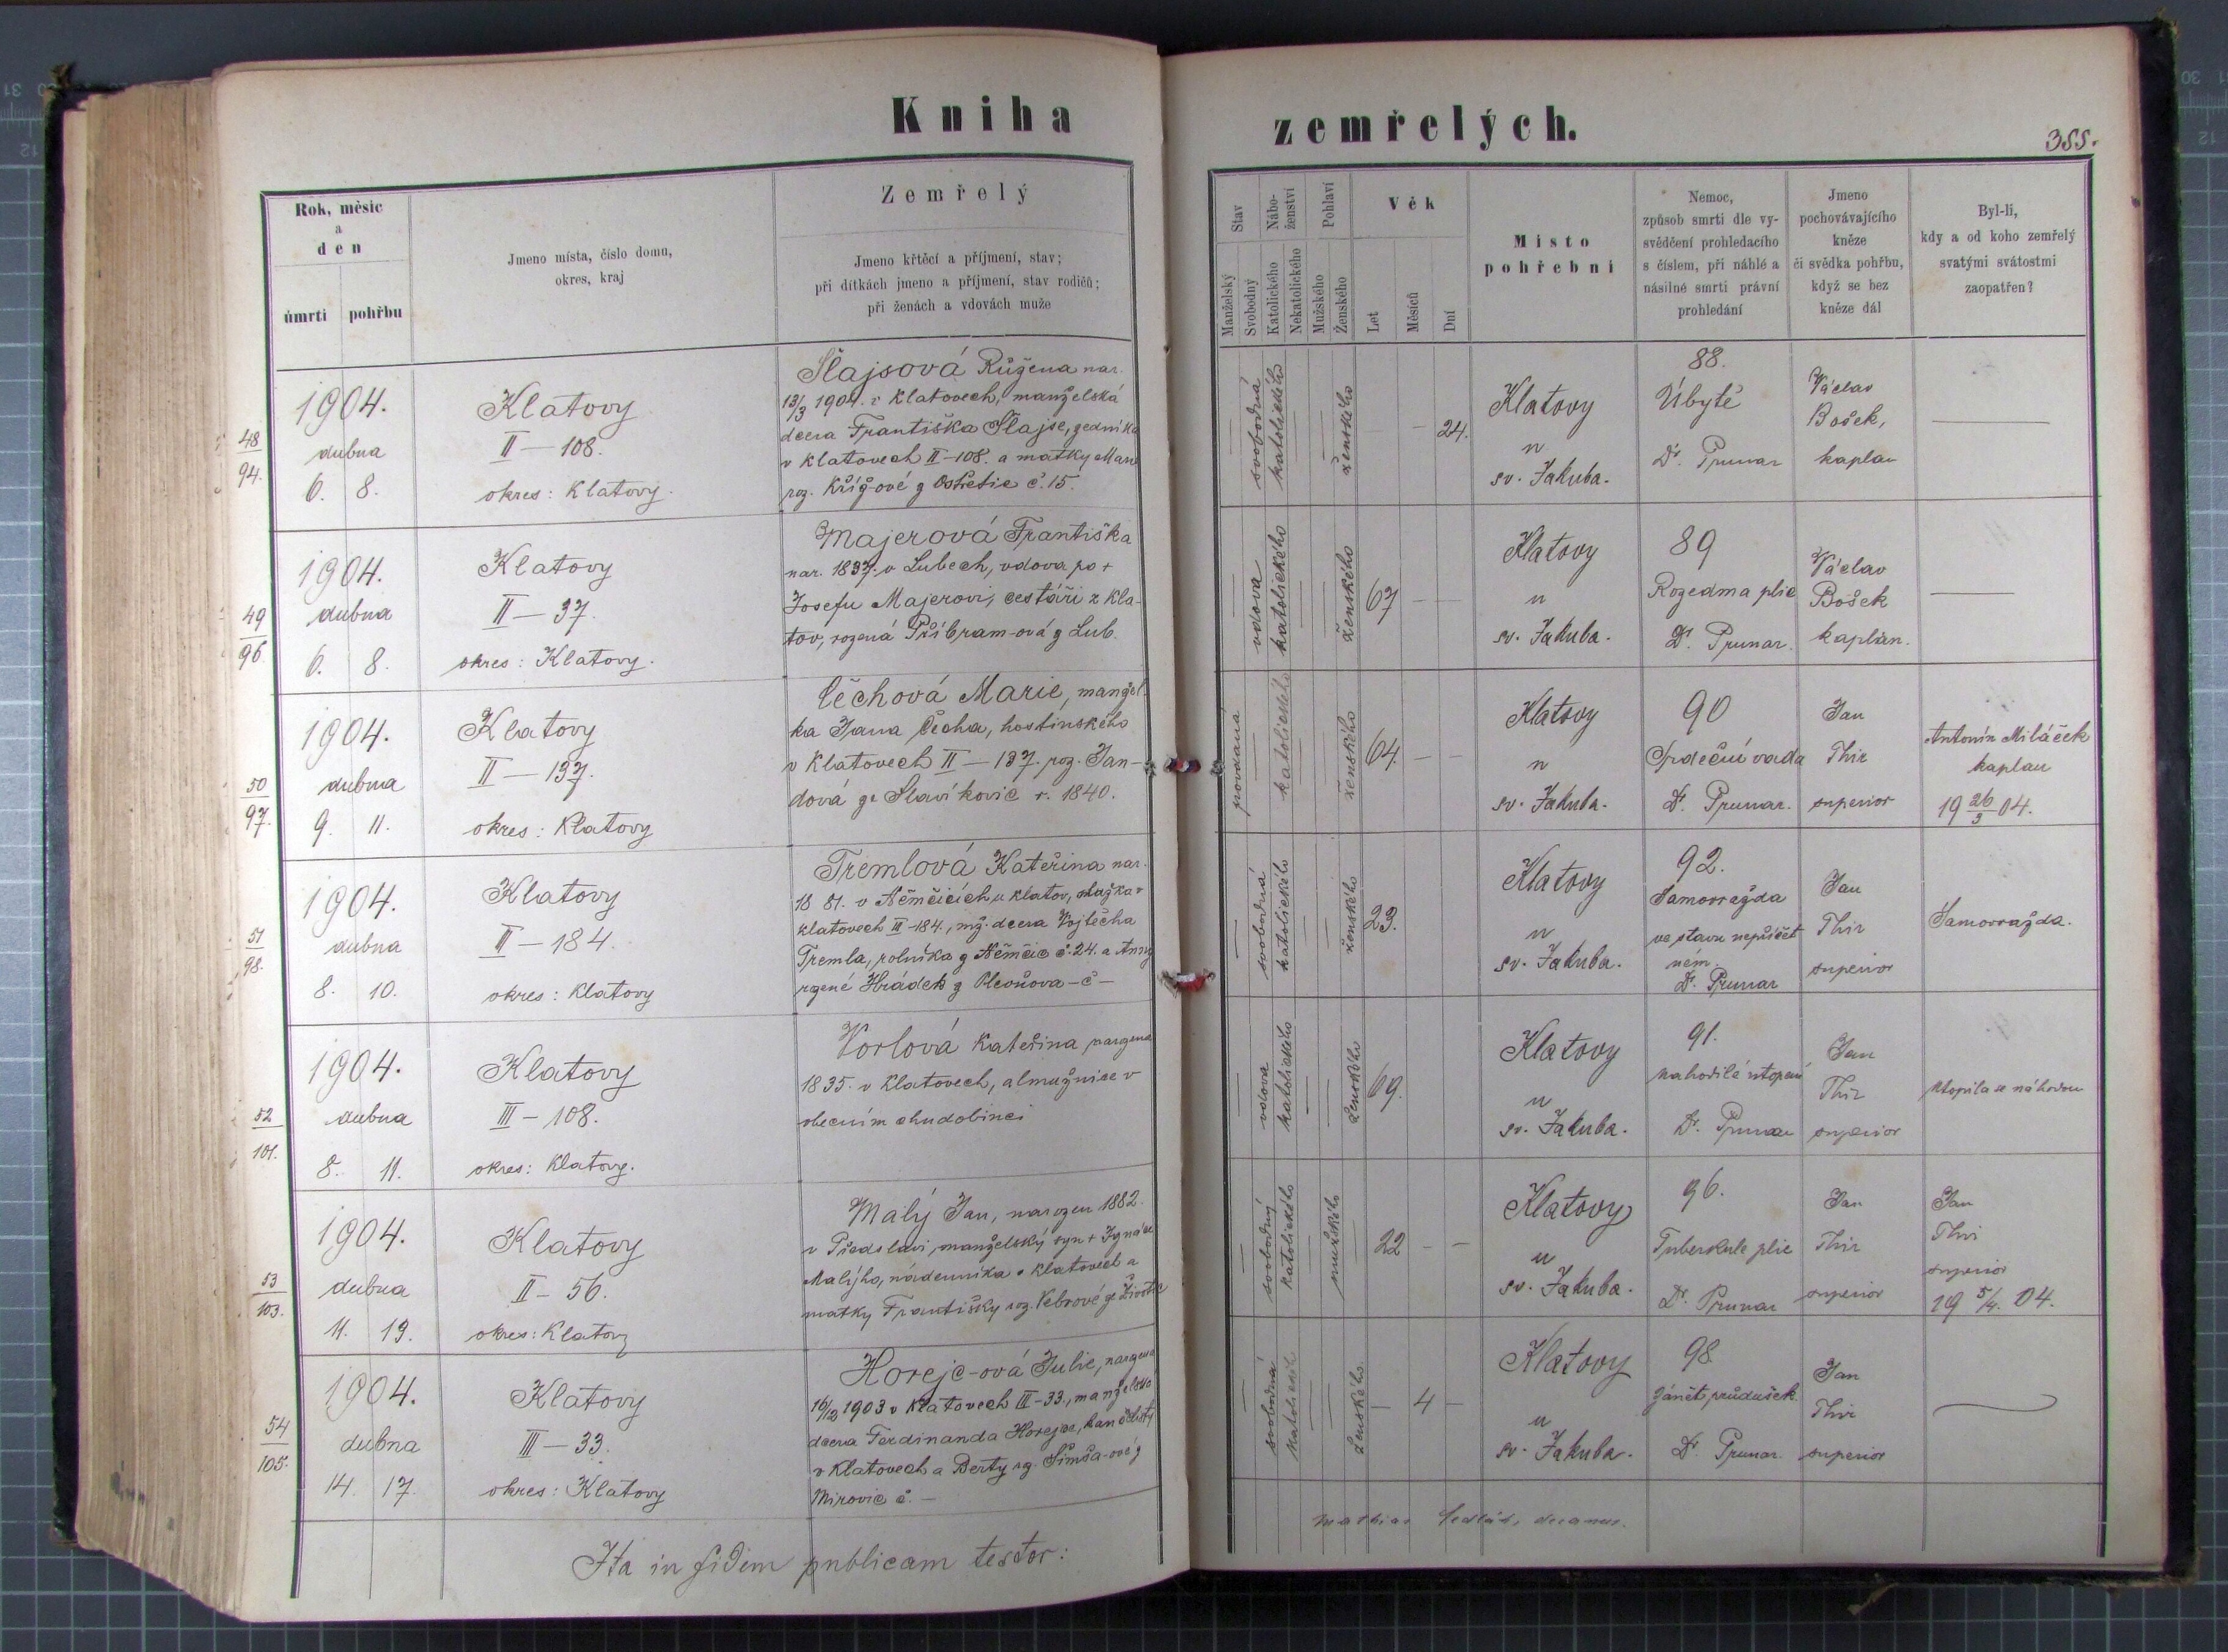 Kniha zemřelých.
355.
Rok, měsíc
a
den
úmrtí
pohřbu
Jmeno místa, číslo domu,
okres, kraj
Zemřelý
Jmeno křtěcí a příjmení, stav;
při dítkách jmeno a příjmení, stav rodičů;
při ženách a vdovách muže
Stav
Manželský
Svobodný
Nábo-
ženství
Katolického
Nekatolického
Pohlaví
Mužského
Ženského
Věk
Let
Měsíců
Dní
Místo
pohřební
Nemoc,
způsob smrti dle vy-
svědčení prohledacího
s číslem, při náhlé a
násilné smrti právní
prohledání
Jmeno
pochovávajícího
kněze
či svědka pohřbu,
když se bez
kněze dál
Byl-li,
kdy a od koho zemřelý
svatými svátostmi
zaopatřen?
48
94.
1904.
dubna
6. 8.
Klatovy
II—108.
okres: Klatovy.
Šlajsová Růžena nar.
13/3 1904. v Klatovech, manželská
dcera Františka Šlajse, zedníka
v Klatovech II—108. a matky Marie
roz. Kříž-ové z Ostřetic č. 15.
svobodná
katolického
ženského
24.
Klatovy
u
sv. Jakuba.
88.
Úbytě
Dr. Prunar
Václav
Bošek,
kaplan
49
96.
1904.
dubna
6. 8.
Klatovy
II—37.
okres: Klatovy.
Majerová Františka
nar. 1837. v Lubech, vdova po +
Josefu Majerovi, cestáři z Kla-
tov, rozená Příbram-ová z Lub.
vdova
katolického
ženského
67
Klatovy
u
sv. Jakuba.
89
Rozedma plic
Dr. Prunar.
Václav
Bošek
kaplan.
50
97.
1904.
dubna
9. 11.
Klatovy
II—137.
okres: Klatovy
Čechová Marie, manžel-
ka Jana Čecha, hostinského
v Klatovech II—137. roz. Jan-
dová ze Slavíkovic r. 1840.
provdaná
katolického
ženského
64.
Klatovy
u
sv. Jakuba.
90
Srdeční vada
Dr. Prunar.
Jan
Thir
superior
Antonín Miláček
kaplan
19 26/3 04.
51
98.
1904.
dubna
8. 10.
Klatovy
III—184.
okres: Klatovy
Tremlová Kateřina nar.
1881. v Němčicích u Klatov, služka v
Klatovech III-184., mž. dcera Vojtěcha
Tremla, rolníka z Němčic č. 24. a Anny
rozené Hrádek z
svobodná
katolického
ženského
23.
Klatovy
u
sv. Jakuba.
92.
Samovražda
ve stavu nepříčet-
ném.
Dr. Prunar
Jan
Thir
superior
Samovražda.
52
101.
1904.
dubna
8. 11.
Klatovy
III—108.
okres: Klatovy.
Vorlová Kateřina, narozena
1835. v Klatovech, almužnice v
obecním chudobinci
vdova
katolického
ženského
69.
Klatovy
u
sv. Jakuba.
91.
nahodilé utopení
Dr. Prunar
Jan
Thir
superior
utopila se náhodou
53
103.
1904.
dubna
11. 13.
Klatovy
II—56.
okres: Klatovy
Malý Jan, narozen 1882.
v Předslavi, manželský syn + Ignáce
Malýho, nádenníka v Klatovech a
matky Františky roz. Vebrové ze
svobodný
katolického
mužského
22
Klatovy
u
sv. Jakuba.
96.
Tuberkule plic
Dr. Prunar
Jan
Thir
superior
Jan
Thir
superior
19 5/4. 04.
54
105.
1904.
dubna
14. 17.
Klatovy
III—33.
okres: Klatovy
Horejc-ová Julie, narozena
16/12 1903 v Klatovech III-33., manželská
dcera Ferdinanda Horejce,
v Klatovech a Berty rz. Šimša-ové z
Mirovic č. —
svobodná
katolické
ženského
4
Klatovy
u
sv. Jakuba.
98.
Zánět průdušek.
Dr. Prunar.
Jan
Thir
superior
Ita in fidem publicam testor:
Mathias Sedlák, decanus.